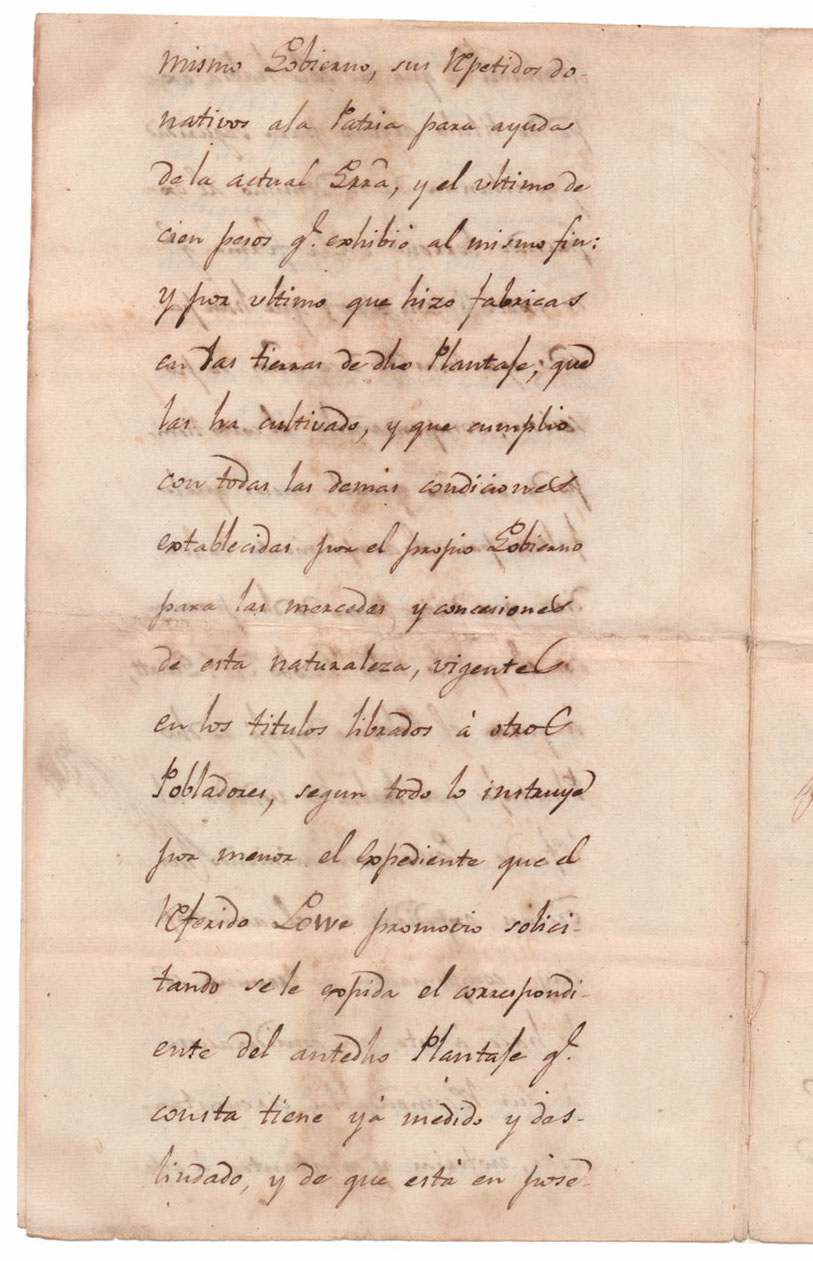 mismo Gobierno, sus Repetidos do-
nativos ala Patria para ayuda
de la actual Grrã, y el vltimo de
cien pesos q.ͤ exhibió al mismo fin:
y por vltimo que hizo fabricas
en las tierras de dho Plantaje, que
las ha cultivado, y que cumplio
con todas las demas condiciones
establecidas por el propio Gobierno
para las mercedes y concesiones
de esta naturaleza, vigentes
en los titulos librados á otros
Pobladores, segun todo lo instruye
por menor el Expediente que el
Referido Lowe promovio solici-
tando se le expida el correspondi-
ente del antedho Plantaje q.ͤ
consta tiene yá medido y des-
lindado, y de que está en pose-